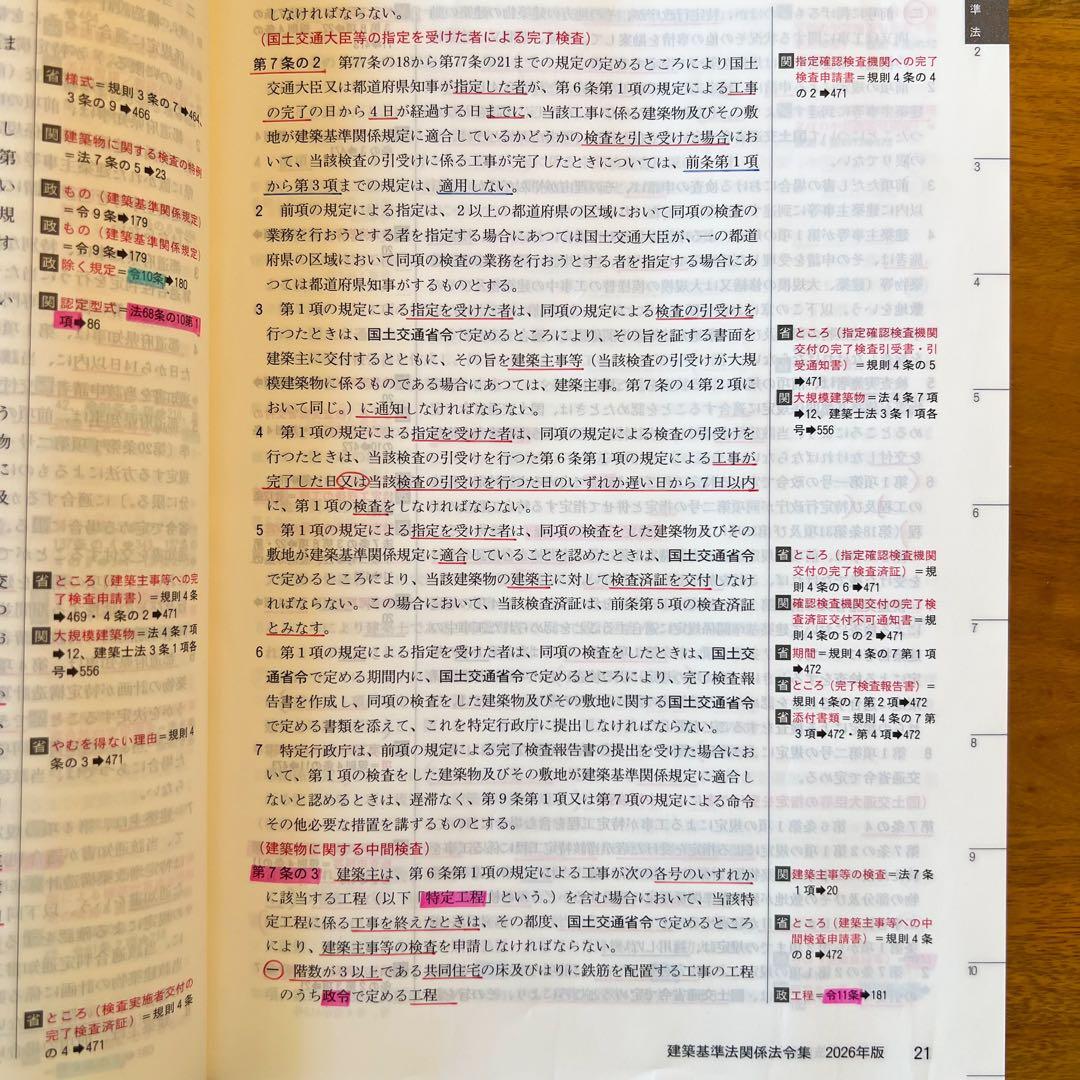 様式＝規則３条の７➡464、
３条の９➡466
建築物に関する検査の特例
＝法７条の５➡23
もの（建築基準関係規定）
＝令９条➡179
もの（建築基準関係規定）
＝令９条➡179
除く規定＝令10条➡180
認定型式＝法68条の10第１
項➡86
ところ（建築主事等への完
了検査申請書）＝規則４条
➡469・４条の２➡471
大規模建築物＝法４条７項
➡12、建築士法３条１項各
号➡556
やむを得ない理由＝規則４
条の３➡471
ところ（検査実施者交付の
完了検査済証）＝規則４条
の４➡471
しなければならない。
（国土交通大臣等の指定を受けた者による完了検査）
第７条の２　第77条の18から第77条の21までの規定の定めるところにより国土
交通大臣又は都道府県知事が指定した者が、第６条第１項の規定による工事
の完了の日から４日が経過する日までに、当該工事に係る建築物及びその敷
地が建築基準関係規定に適合しているかどうかの検査を引き受けた場合にお
いて、当該検査の引受けに係る工事が完了したときについては、前条第１項
から第３項までの規定は、適用しない。
２　前項の規定による指定は、２以上の都道府県の区域において同項の検査の
業務を行おうとする者を指定する場合にあつては国土交通大臣が、一の都道
府県の区域において同項の検査の業務を行おうとする者を指定する場合にあ
つては都道府県知事がするものとする。
３　第１項の規定による指定を受けた者は、同項の規定による検査の引受けを
行つたときは、国土交通省令で定めるところにより、その旨を証する書面を
建築主に交付するとともに、その旨を建築主事等（当該検査の引受けが大規
模建築物に係るものである場合にあつては、建築主事。第７条の４第２項に
おいて同じ。）に通知しなければならない。
４　第１項の規定による指定を受けた者は、同項の規定による検査の引受けを
行つたときは、当該検査の引受けを行つた第６条第１項の規定による工事が
完了した日又は当該検査の引受けを行つた日のいずれか遅い日から７日以内
に、第１項の検査をしなければならない。
５　第１項の規定による指定を受けた者は、同項の検査をした建築物及びその
敷地が建築基準関係規定に適合していることを認めたときは、国土交通省令
で定めるところにより、当該建築物の建築主に対して検査済証を交付しなけ
ればならない。この場合において、当該検査済証は、前条第５項の検査済証
とみなす。
６　第１項の規定による指定を受けた者は、同項の検査をしたときは、国土交
通省令で定める期間内に、国土交通省令で定めるところにより、完了検査報
告書を作成し、同項の検査をした建築物及びその敷地に関する国土交通省令
で定める書類を添えて、これを特定行政庁に提出しなければならない。
７　特定行政庁は、前項の規定による完了検査報告書の提出を受けた場合にお
いて、第１項の検査をした建築物及びその敷地が建築基準関係規定に適合し
ないと認めるときは、遅滞なく、第９条第１項又は第７項の規定による命令
その他必要な措置を講ずるものとする。
（建築物に関する中間検査）
第７条の３　建築主は、第６条第１項の規定による工事が次の各号のいずれか
に該当する工程（以下「特定工程」という。）を含む場合において、当該特
定工程に係る工事を終えたときは、その都度、国土交通省令で定めるところ
により、建築主事等の検査を申請しなければならない。
一　階数が３以上である共同住宅の床及びはりに鉄筋を配置する工事の工程
のうち政令で定める工程
準
法
関 指定確認検査機関への完了
検査申請書＝規則４条の４
の２➡471
省 ところ（指定確認検査機関
交付の完了検査引受書・引
受通知書）＝規則４条の５
➡471
関 大規模建築物＝法４条７項
➡12、建築士法３条１項各
号➡556
省 ところ（指定確認検査機関
交付の完了検査済証）＝規
則４条の６➡471
関 確認検査機関交付の完了検
査済証交付不可通知書＝規
則４条の５の２➡471
省 期間＝規則４条の７第１項
➡472
省 ところ（完了検査報告書）＝
規則４条の７第２項➡472
省 添付書類＝規則４条の７第
３項➡472・第４項➡472
関 建築主事等の検査＝法７条
１項➡20
省 ところ（建築主事等への中
間検査申請書）＝規則４条
の８➡472
政 工程＝令11条➡181
2
3
4
5
6
7
8
9
10
建築基準法関係法令集　2026年版　21